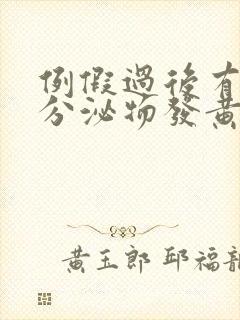 例假過後有
分泌物發黃
黃玉郎 邱福龍